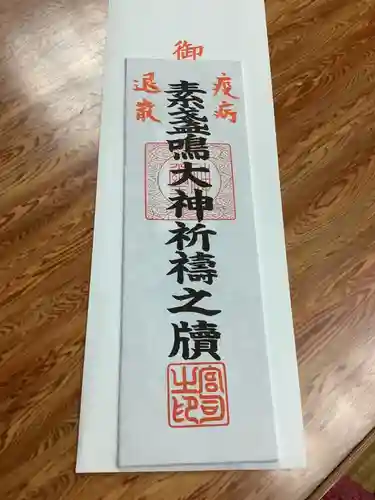 御
疫病
退散
素盞鳴大神祈禱之牘
宮司之印